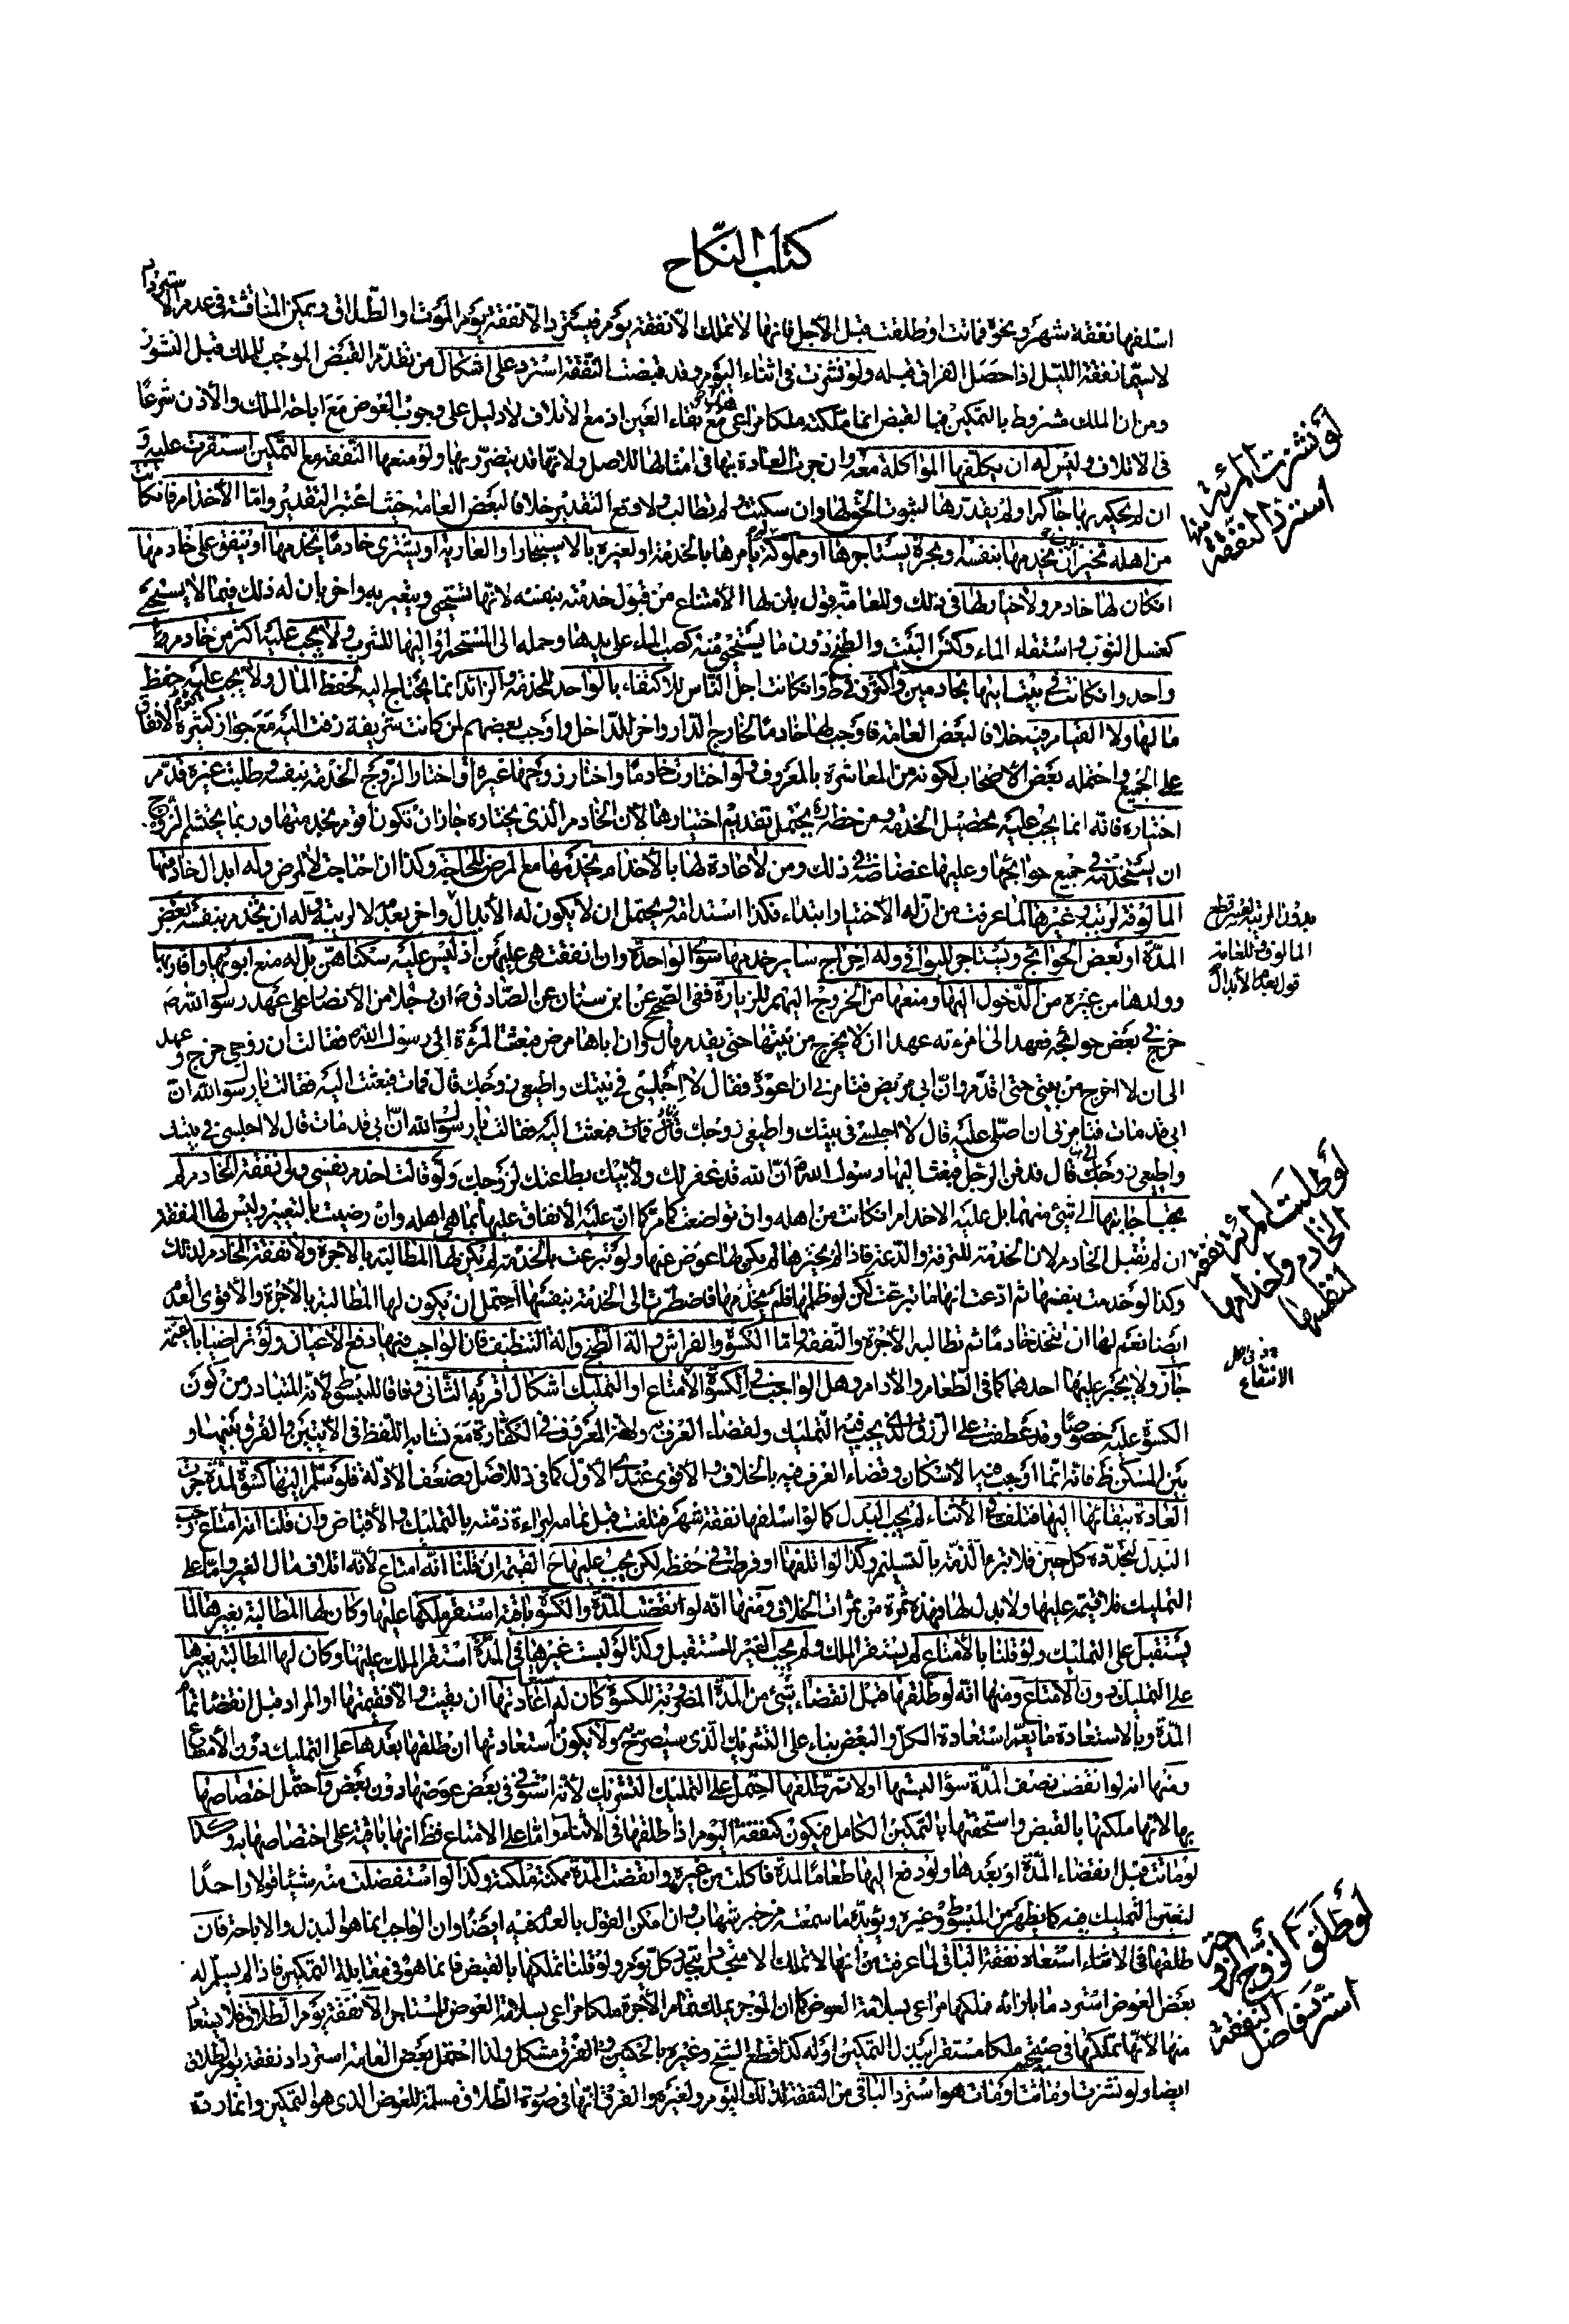 كتاب النكاح
اسلفها نفقة شهر ونحوه فماتت او طلقت قبل الاجل فانها لا تملك الا نفقة يوم فيسترد الا نفقة يوم الموت او الطلاق ويمكن المناقشة في عدم الاسترداد
لاسيما نفقة الليل اذا حصل الفراق قبله ولو نشزت في اثناء اليوم وقد قبضت النفقة استرد على اشكال من تقدم القبض الموجب للملك قبل النشوز
ومن ان الملك مشروط بالتمكين فبالقبض انما ملكته ملكا مراعى مع بقاء العين اذ مع الاتلاف لا دليل على وجوب العوض مع اباحة الملك والاذن شرعا
في الاتلاف وليس له ان يكلفها المؤاكلة معه وان جرت العادة بها في امثالها للاصل ولانها قد يتضرر بها ولو منعها النفقة مع التمكين استقرت عليه و
ان لم يحكم بها حاكم او لم يقدرها لثبوت الحق لها وان سكتت ولم تطالب ولا وقع التقدير خلافا لبعض العامة حيث اعتبر التقدير واما الاخدام فان كانت
من اهله تخير بين ان يخدمها بنفسه وبحرة يستاجرها او مملوكة له يامرها بالخدمة او لغيره بالاستيجار او العارية او يشترى خادما يخدمها او ينفق على خادمها
ان كان لها خادم ولا خيار لها في ذلك وللعامة قول بان لها الامتناع من قبول خدمته بنفسه لانها تستحيي وتتغير به واخر بان له ذلك فيما لا يستحيى
كغسل الثوب واستقاء الماء وكنس البيت والطبخ دون ما يستحيى منه كصب الماء على يديها وحمله الى المستحم او اليها للشرب ولا يجب عليه اكثر من خادم
واحد وان كانت في بيت ابيها بخادمين واكثر في ط وان كانت اجل الناس للاكتفاء بالواحد للخدمة والزائد انما يحتاج اليه لحفظ المال ولا يجب عليه حفظ
مالها ولا القيام فيه خلافا لبعض العامة فاوجب لها خادما لخارج الدار واخر للداخل واوجب بعضهم لمن كانت شريفة زفت اليه مع جواز كثيرة الانفاق
على الجميع واحتمله بعض الاصحاب لكونه من المعاشرة بالمعروف ولو اختارت خادما واختار زوجها غيره او اختار الزوج الخدمة بنفسه وطلبت غيره قدم
اختياره فانه انما يجب عليه تحصيل الخدمة ومن حظه يحتمل تقديم اختيارها لان الخادم الذي يختاره جاز ان تكون اقوم بخدمتها وربما يحتشم الزوج
ان يستخدمه في جميع حوائجها وعليها غضاضة في ذلك ومن لا عادة لها بالاخدام يخدمها مع المرض للحاجة وكذا ان احتاجت لا لمرض وله ابدال خادمها
المالوفة لريبة وغيرها لما عرفت من ان له الاختيار ابتداء فكذا استدامة ويحتمل ان لا يكون له الابدال واخر بعدم لا لريبة وله ان يخدم بنفسه بعض
المدة او بعض الحوائج ويستاجر للبواقي وله اخراج ساير خدمها سوى الواحدة وان انفقت هي عليهن اذ ليس عليه سكناهن بل له منع ابويها واقاربها
وولدها من غيره من الدخول اليها ومنعها من الخروج اليهم للزيارة ففي الصحيح عن ابن سنان عن الصادق ان رجلا من الانصار على عهد رسول الله ص
خرج في بعض حوائجه فعهد الى امرءته عهدا ان لا يخرج من بيتها حتى يقدم قال وان اباها مرض فبعثت المرءة الى رسول الله فقالت ان زوجي خرج وعهد
الى ان لا اخرج من بيتي حتى اقدم وان ابي مريض فتامرني ان اعوده فقال لا اجلسي في بيتك واطيعي زوجك قال فمات فبعثت اليه فقالت يا رسول الله ان
ابي قد مات فتامرني ان اصلي عليه قال لا اجلسي في بيتك واطيعي زوجك قال فمات فبعثت اليه فقالت يا رسول الله ان ابي قد مات قال لا اجلسي في بيتك
واطيعي زوجك قال فدفن الرجل فبعث اليها رسول الله ان الله قد غفر لك ولابيك بطاعتك لزوجك ولو قالت اخدم بنفسي ولي نفقة الخادم لم
يجب اجابتها الى شئ منهما بل عليه الاخدام ان كانت من اهله وان تواضعت كما مر كما ان عليه الانفاق عليها بما هي اهله وان رضيت بالتغيير وليس لها النفقة
ان لم تقبل الخادم لان الخدمة للترفه والدعة فاذا لم يخترها لم يكن لها عوض عنها ولو تبرعت بالخدمة لم يكن لها المطالبة بالاجرة ولا نفقة الخادم لذلك
وكذا لو خدمت بنفسها ثم ادعت انها ما تبرعت لكن لو ظلمها فلم يخدمها فاضطرت الى الخدمة بنفسها احتمل ان يكون لها المطالبة بالاجرة والاقوى العدم
ايضا نعم لها ان تتخذ خادما ثم تطالبه الاجرة والنفقة واما الكسوة والفراش والة الطبخ والة التنظيف فان الواجب فيها دفع الاعيان ولو تراضيا بالقيمة
جاز ولا يجبر عليها احدهما كما في الطعام والادام وهل الواجب في الكسوة الامتاع او التمليك اشكال اقربه الثاني وفاقا للمبسوط لانه المتبادر من كون
الكسوة عليه خصوصا وقد عطفت على الرزق الذي يجب فيه التمليك ولقضاء العرف به ولانه المعروف في الكفارة مع تشابه اللفظ في الايتين والفرق بينها و
بين المسكن ظ فانه انما اوجب فيه الاسكان وقضاء العرف فيه بالخلاف والاقوى عندي الاول كما في ذلك للاصل وضعف الادلة فلو سلم اليها كسوة لمدة جرت
العادة ببقائها اليها فتلفت في الاثناء لم يجب البدل كما لو اسلفها نفقة شهر فتلفت قبل تمامه لبراءة ذمته بالتمليك والاقباض وان قلنا انه امتاع وجب
البدل لتجدده كل حين فلا تبرء الذمة بالتسليم وكذا لو اتلفها او فرطت في حفظه لكن يجب عليها ح القيمة ان قلنا انه امتاع لانه اتلاف مال الغير واما على
التمليك فلا قيمة عليها ولا بدل لها وهذه ثمرة من ثمرات الخلاف ومنها انه لو انقضت المدة والكسوة باقية استقر ملكها عليها وكان لها المطالبة بغيرها لما
يستقبل على التمليك ولو قلنا بالامتاع لم يستقر الملك ولم يجب الغير للمستقبل وكذا لو لبست غيرها في المدة استقر الملك عليها وكان لها المطالبة بغيرها
على التمليك دون الامتاع ومنها انه لو طلقها قبل انقضاء شئ من المدة المضروبة للكسوة كان له اعادتها ان بقيت والا قيمتها او المراد قبل انقضاء تمام
المدة وبالاستعادة ما يعم استعادة الكل والبعض بناء على التشريك الذي سيصرح به ولا يكون استعادتها ان طلقها بعدها على التمليك دون الامتاع
ومنها انه لو انقضت نصف المدة سواء لبستها او لا ثم طلقها احتمل على التمليك التشريك لانه استوفى في بعض عوضها دون بعض واحتمل اختصاصها
بها لانها ملكتها بالقبض واستحقتها بالتمكين الكامل فيكون كنفقة اليوم اذا طلقها في الاثناء واما على الامتاع فظ انها باقية على اختصاصها به وكذا
لو ماتت قبل انقضاء المدة او بعدها ولو دفع اليها طعاما لمدة فاكلت من غيره وانقضت المدة ممكنة ملكته وكذا لو استفضلت منه شيئا قولا واحدا
لتعين التمليك فيه كما يظهر من المبسوط وغيره ويؤيده ما سمعته من خبر شهاب وان امكن القول بالعدم فيه ايضا وان الواجب انما هو البذل والاباحة فان
طلقها في الاثناء استعاد نفقة الباقي لما عرفت من انها لا تملك الا متجددا بتجدد كل يوم ولو قلنا تملكها بالقبض فانما هو في مقابلة التمكين فاذا لم يسلم له
بعض العوض استرد ما بازائه فملكها مراعى بسلامة العوض كما ان الموجر يملك تمام الاجرة ملكا مراعى بسلامة العوض للمستاجر الا نفقة يوم الطلاق فلا يستعاد
منها لانها تملكها في صبيحته ملكا مستقرا ببذل التمكين اوله كذا قطع الشيخ وغيره بالحكمين والفرق مشكل ولذا احتمل بعض العامة استرداد نفقة يوم الطلاق
ايضا ولو نشزت او ماتت او مات هو استرد الباقي من النفقة لذلك اليوم ولغيره والفرق انها في صورة الطلاق مسلمة للعوض الذي هو التمكين وانما رده
لو نشزت المرئة
استرد النفقة منها
بدون الريبة لغيره قطع
المالوفة للعامة
قول بعدم الابدال
لو طلبت المرئة نفقة
الخادم واخدامها
لنفسها
الانتفاع
لو طلق الزوج الزوجة
استرد فاضل النفقة